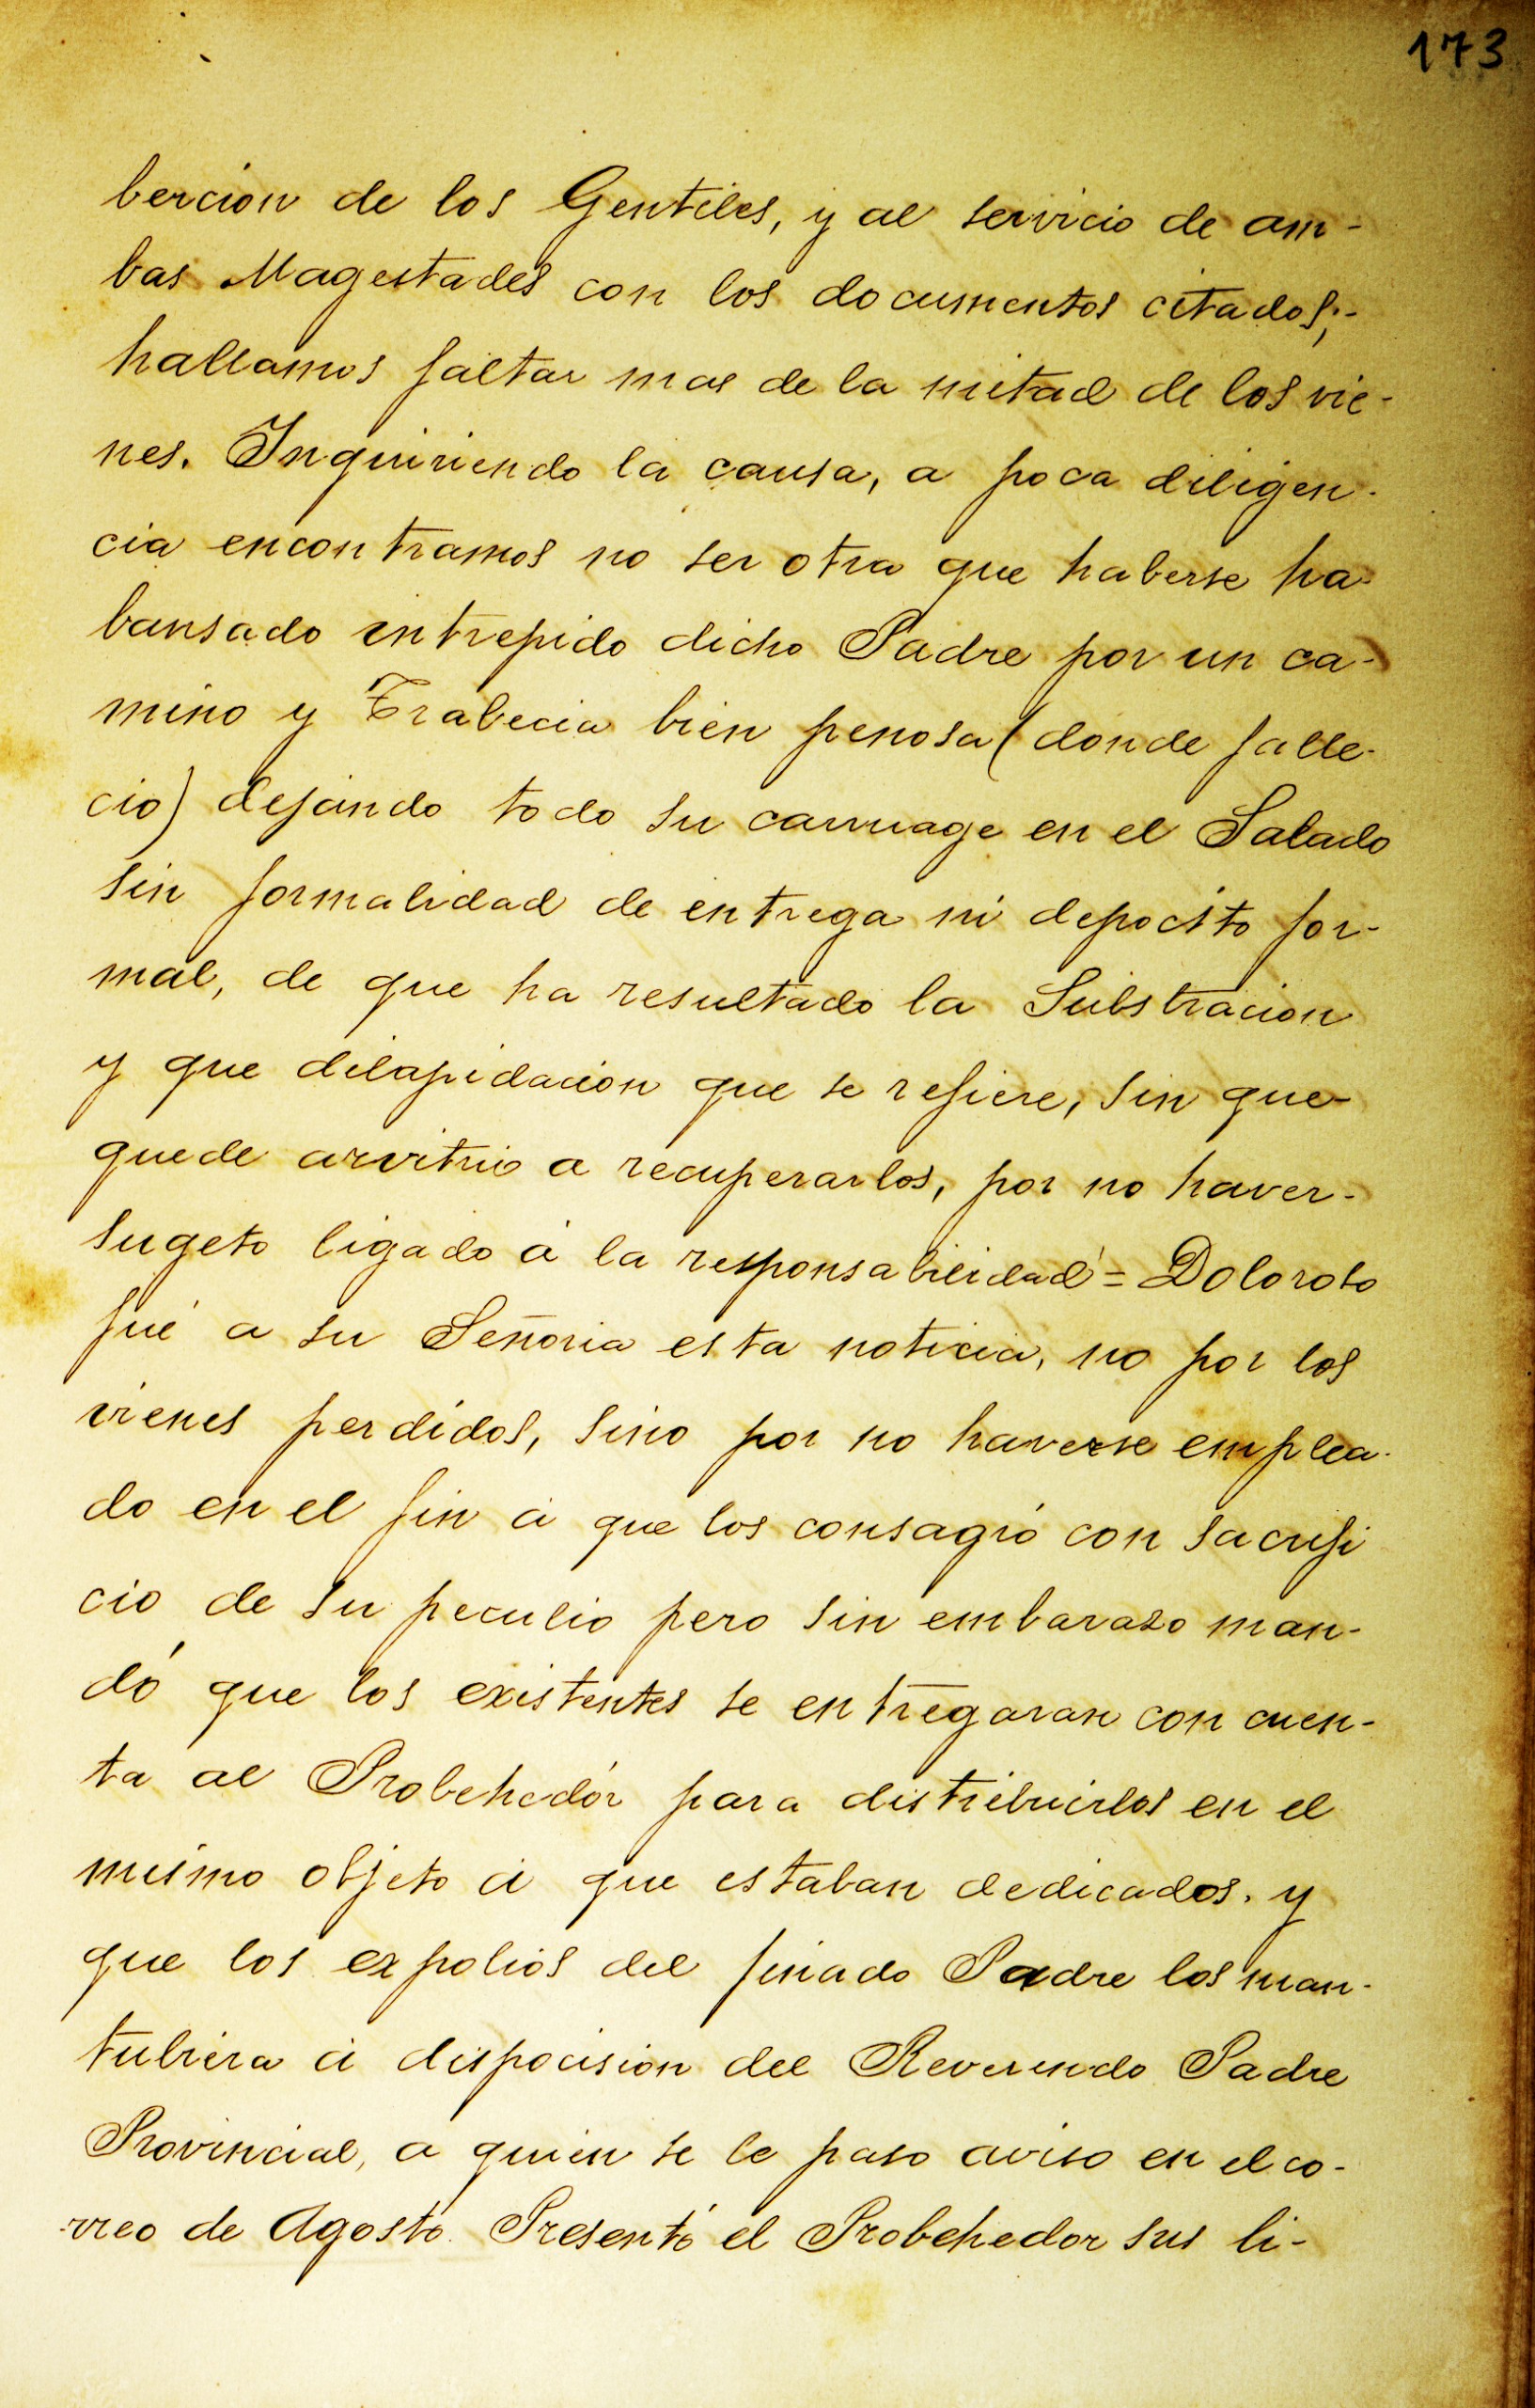 173
bercion de los Gentiles, y al servicio de am-
bas Magestades con los documentos citados;-
hallamos faltar mas de la mitad de los vie-
nes. Inquiriendo la causa, a poca diligen-
cia encontramos no ser otra que haberse ha-
bansado intrepido dicho Padre por un ca-
mino y Trabecia bien penosa (donde falle-
cio) dejando todo su carruage en el Salado
sin formalidad de entrega ni depocito for-
mal, de que ha resultado la Substracion
y que dilapidacion que se refiere, sin que-
quede arvitrio a recuperarlos, por no haver-
sugeto ligado á la responsabilidad = Doloroso
fué a su Señoria esta noticia, no por los
vienes perdidos, sino por no haverse emplea-
do en el fin á que los consagró con sacrifi
cio de su peculio pero sin embaraso man-
dó que los existentes se entregaran con cuen-
ta al Probehedór para distribuirlos en el
mismo objeto á que estaban dedicados. y
que los expolios del finado Padre los man-
tubiera á dispocision del Reverendo Padre
Provincial, a quien se le paso aviso en el co-
rreo de Agosto. Presentó el Probehedor sus li-